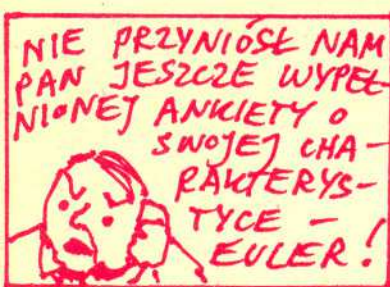 NIE PRZYNIÓSŁ NAM
PAN JESZCZE WYPEŁ-
NIONEJ ANKIETY O
SWOJEJ CHA-
RAKTERYS-
TYCE -
EULER!